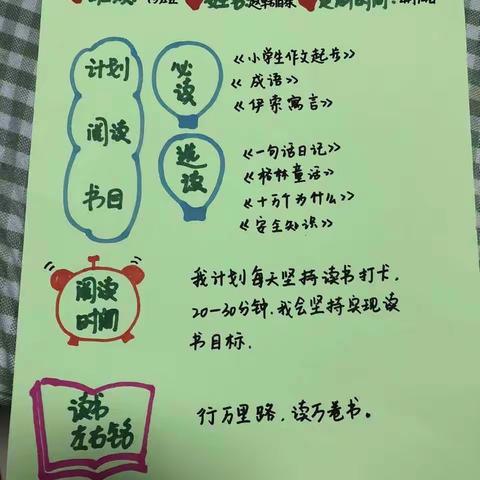 计划
阅读
书目
必读
《小学生作文起步》
《成语》
《伊索寓言》
选读
《一句话日记》
《格林童话》
《十万个为什么》
《安全知识》
阅读
时间
我计划每天坚持读书打卡,
20-30分钟,我会坚持实现读
书目标.
读书
左右铭
行万里路,读万卷书。